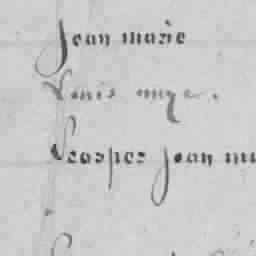 Jean marie
Louis ange.
Prosper jean ma